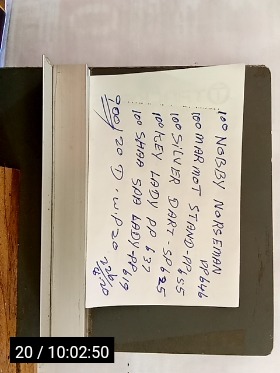 100 NOBBY NORSEMAN PP646
100 MARMOT STAND-PP655
100 SILVER DART-SP625
100 KEY LADY PP 637
100 SHAA SAB LADY-PP619
20 D.W.P20
20 / 10:02:50